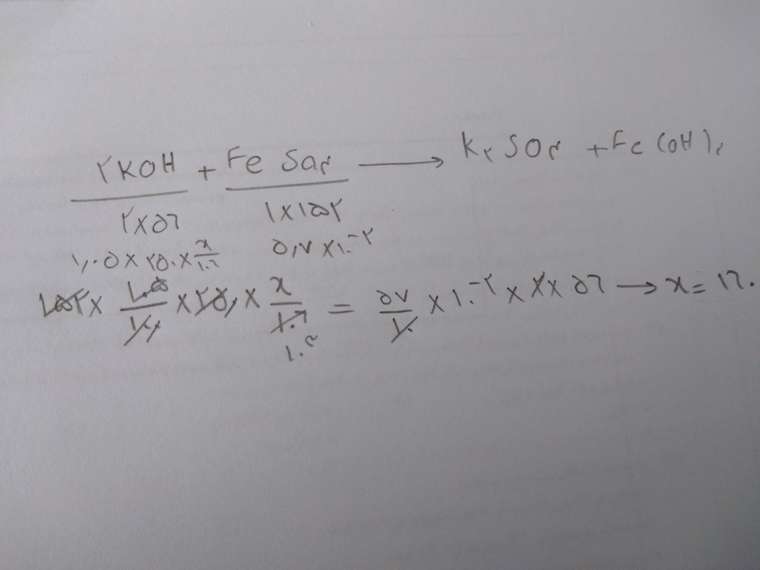 ۲KOH + Fe SO۴ ⟶ K۲ SO۴ + Fe (OH)۲
۲×۵۶ ۱×۱۵۲
۱٫۰۵×۲۵۰×x/۱۰۶ ۵٫۷×۱۰⁻۲
۱۵۲× ۱۰۵/۱۰۰ ×۲۵۰× x/۱۰۶ = ۵۷/۱۰ ×۱۰⁻۲×۲×۵۶ ⟶ x= ۱۶۰
۱۰۴